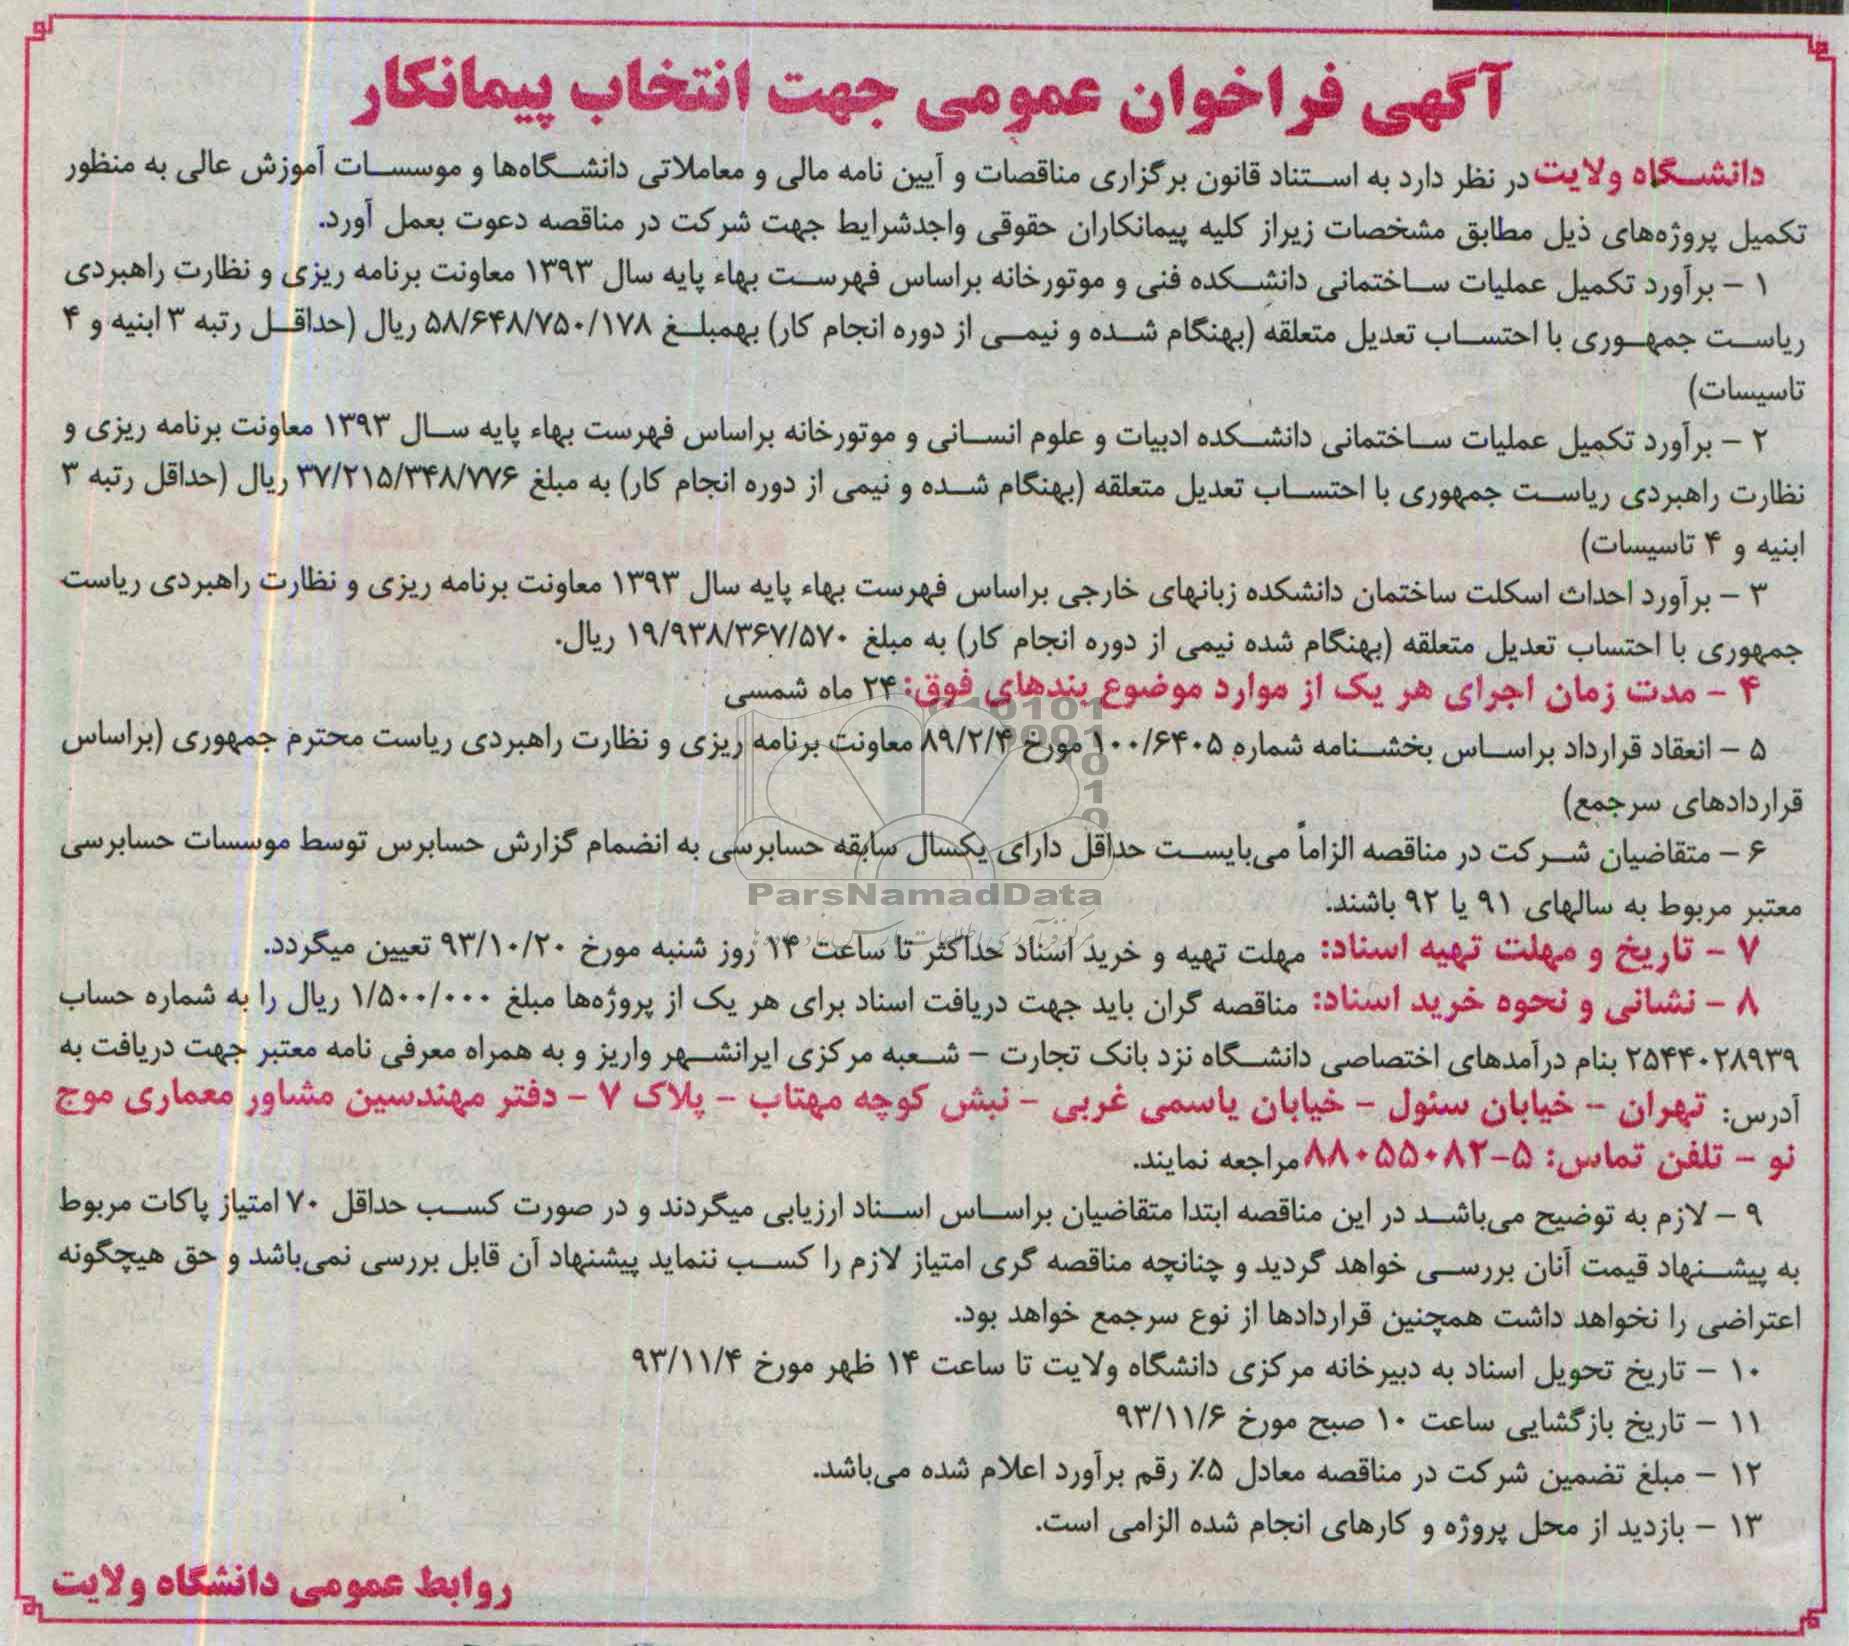 آگهی فراخوان عمومی جهت انتخاب پیمانکار
دانشگاه ولایت در نظر دارد به استناد قانون برگزاری مناقصات و آیین نامه مالی و معاملاتی دانشگاه‌ها و موسسات آموزش عالی به منظور
تکمیل پروژه‌های ذیل مطابق مشخصات زیراز کلیه پیمانکاران حقوقی واجدشرایط جهت شرکت در مناقصه دعوت بعمل آورد.
۱ – برآورد تکمیل عملیات ساختمانی دانشکده فنی و موتورخانه براساس فهرست بهاء پایه سال ۱۳۹۳ معاونت برنامه ریزی و نظارت راهبردی
ریاست جمهوری با احتساب تعدیل متعلقه (بهنگام شده و نیمی از دوره انجام کار) بهمبلغ ۵۸/۶۴۸/۷۵۰/۱۷۸ ریال (حداقل رتبه ۳ ابنیه و ۴
تاسیسات)
۲ – برآورد تکمیل عملیات ساختمانی دانشکده ادبیات و علوم انسانی و موتورخانه براساس فهرست بهاء پایه سال ۱۳۹۳ معاونت برنامه ریزی و
نظارت راهبردی ریاست جمهوری با احتساب تعدیل متعلقه (بهنگام شده و نیمی از دوره انجام کار) به مبلغ ۳۷/۲۱۵/۳۴۸/۷۷۶ ریال (حداقل رتبه ۳
ابنیه و ۴ تاسیسات)
۳ – برآورد احداث اسکلت ساختمان دانشکده زبانهای خارجی براساس فهرست بهاء پایه سال ۱۳۹۳ معاونت برنامه ریزی و نظارت راهبردی ریاست
جمهوری با احتساب تعدیل متعلقه (بهنگام شده نیمی از دوره انجام کار) به مبلغ ۱۹/۹۳۸/۳۶۷/۵۷۰ ریال.
۴ – مدت زمان اجرای هر یک از موارد موضوع بندهای فوق: ۲۴ ماه شمسی
۵ – انعقاد قرارداد براساس بخشنامه شماره ۱۰۰/۶۴۰۵ مورخ ۸۹/۲/۴ معاونت برنامه ریزی و نظارت راهبردی ریاست محترم جمهوری (براساس
قراردادهای سرجمع)
۶ – متقاضیان شرکت در مناقصه الزاماً می‌بایست حداقل دارای یکسال سابقه حسابرسی به انضمام گزارش حسابرس توسط موسسات حسابرسی
معتبر مربوط به سالهای ۹۱ یا ۹۲ باشند.
ParsNamadData
۷ – تاریخ و مهلت تهیه اسناد: مهلت تهیه و خرید اسناد حداکثر تا ساعت ۱۴ روز شنبه مورخ ۹۳/۱۰/۲۰ تعیین میگردد.
۸ – نشانی و نحوه خرید اسناد: مناقصه گران باید جهت دریافت اسناد برای هر یک از پروژه‌ها مبلغ ۱/۵۰۰/۰۰۰ ریال را به شماره حساب
۲۵۴۴۰۲۸۹۳۹ بنام درآمدهای اختصاصی دانشگاه نزد بانک تجارت – شعبه مرکزی ایرانشهر واریز و به همراه معرفی نامه معتبر جهت دریافت به
آدرس: تهران – خیابان سئول – خیابان یاسمی غربی – نبش کوچه مهتاب – پلاک ۷ – دفتر مهندسین مشاور معماری موج
نو – تلفن تماس: ۵–۸۸۰۵۵۰۸۲ مراجعه نمایند.
۹ – لازم به توضیح می‌باشد در این مناقصه ابتدا متقاضیان براساس اسناد ارزیابی میگردند و در صورت کسب حداقل ۷۰ امتیاز پاکات مربوط
به پیشنهاد قیمت آنان بررسی خواهد گردید و چنانچه مناقصه گری امتیاز لازم را کسب ننماید پیشنهاد آن قابل بررسی نمی‌باشد و حق هیچگونه
اعتراضی را نخواهد داشت همچنین قراردادها از نوع سرجمع خواهد بود.
۱۰ – تاریخ تحویل اسناد به دبیرخانه مرکزی دانشگاه ولایت تا ساعت ۱۴ ظهر مورخ ۹۳/۱۱/۴
۱۱ – تاریخ بازگشایی ساعت ۱۰ صبح مورخ ۹۳/۱۱/۶
۱۲ – مبلغ تضمین شرکت در مناقصه معادل ۵٪ رقم برآورد اعلام شده می‌باشد.
۱۳ – بازدید از محل پروژه و کارهای انجام شده الزامی است.
روابط عمومی دانشگاه ولایت